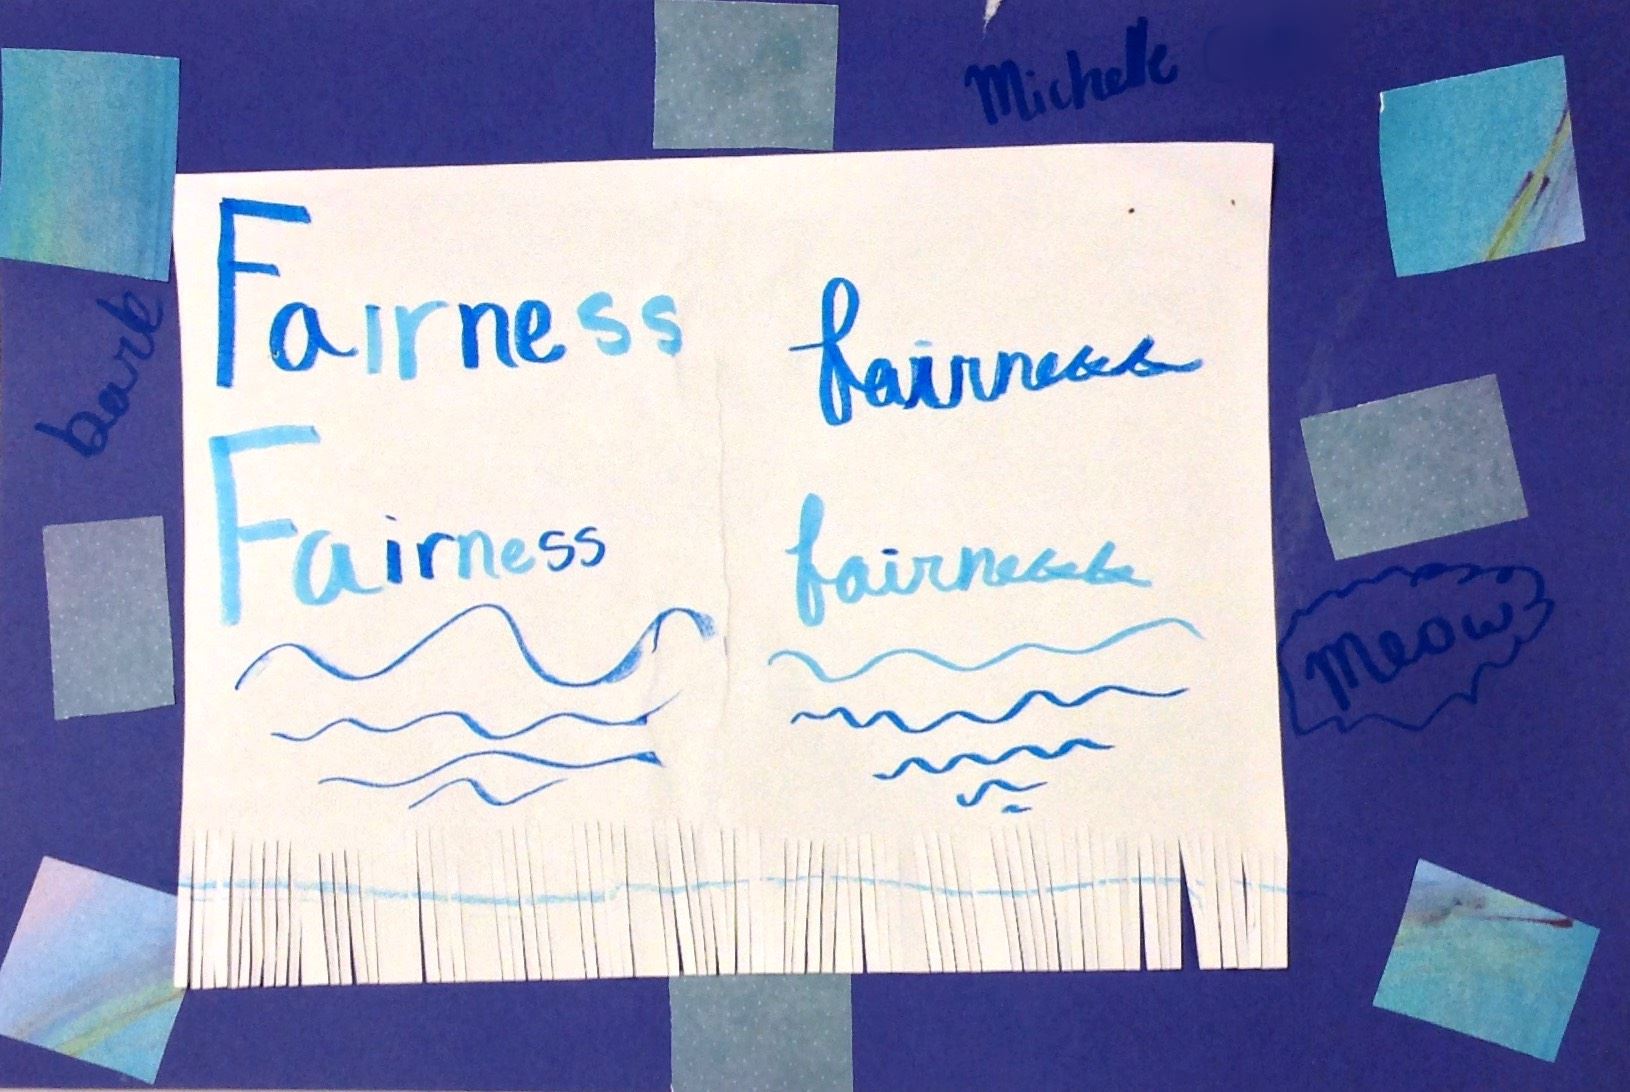 Michelle
Fairness
fairness
bark
Fairness
fairness
Meow